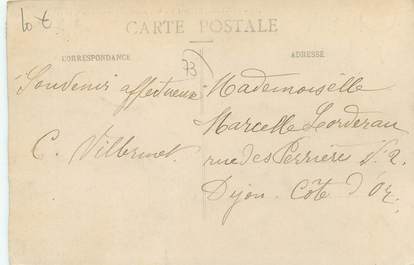 10 €
CARTE POSTALE
CORRESPONDANCE
ADRESSE
73
Souvenir affectueux
C. Villermet
Mademoiselle
Marcelle Lorderau
rue des Perrières N. 2
Dijon Côte d'Or.